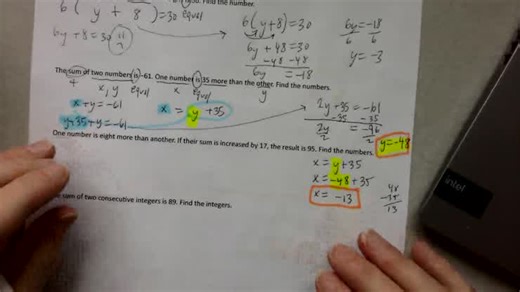 Find the number.
6(y+8)=30 equal
6y+8=30
6(y+8)=30
6y+48=30
-48 -48
6y =-18
6y=-18
6 6
y=-3
The sum of two numbers is -61. One number is 35 more than the other. Find the numbers.
+ x,y equal x equal y
x+y=-61
x = y+35
y+35+y=-61
2y+35=-61
-35 -35
2y = -96
2 2
y=-48
One number is eight more than another. If their sum is increased by 17, the result is 95. Find the numbers.
x = y+35
x = -48+35
x = -13
48
-35
13
sum of two consecutive integers is 89. Find the integers.
intel